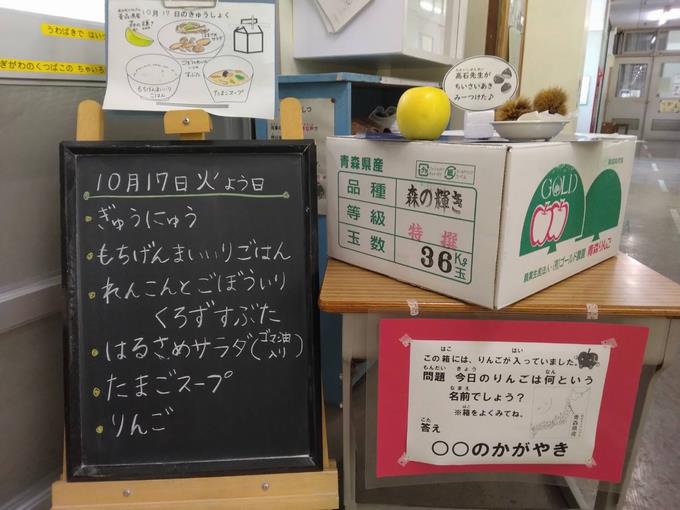 うわばきで はい
ぎがわのくつばこの ちゃいろ
青森県産
10月17日のきゅうしょく
もちげんまいいり
ごはん
たまごスープ
10月17日火よう日
ぎゅうにゅう
もちげんまいいりごはん
れんこんとごぼういり
くろずすぶた
はるさめサラダ(ゴマ油入り)
たまごスープ
りんご
高石先生が
ちいさいあき
みーつけた♪
青森県産
品種 森の輝き
等級 特撰
玉数 36 Kg玉
GOLD
農業生産法人・(有)ゴールド農園 青森りんご
この箱には、りんごが入っていました。
問題 今日のりんごは何という
名前でしょう?
※箱をよくみてね。
答え
青森県産
○○のかがやき